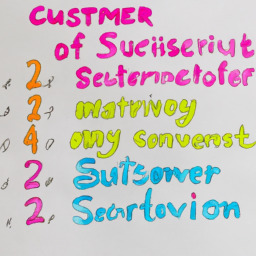 CUSTMER
of Suciiseriut
2 Scutornctofer
2 matrivoy
4 omy convenst
2 Sutsorver
2 Secrtovion